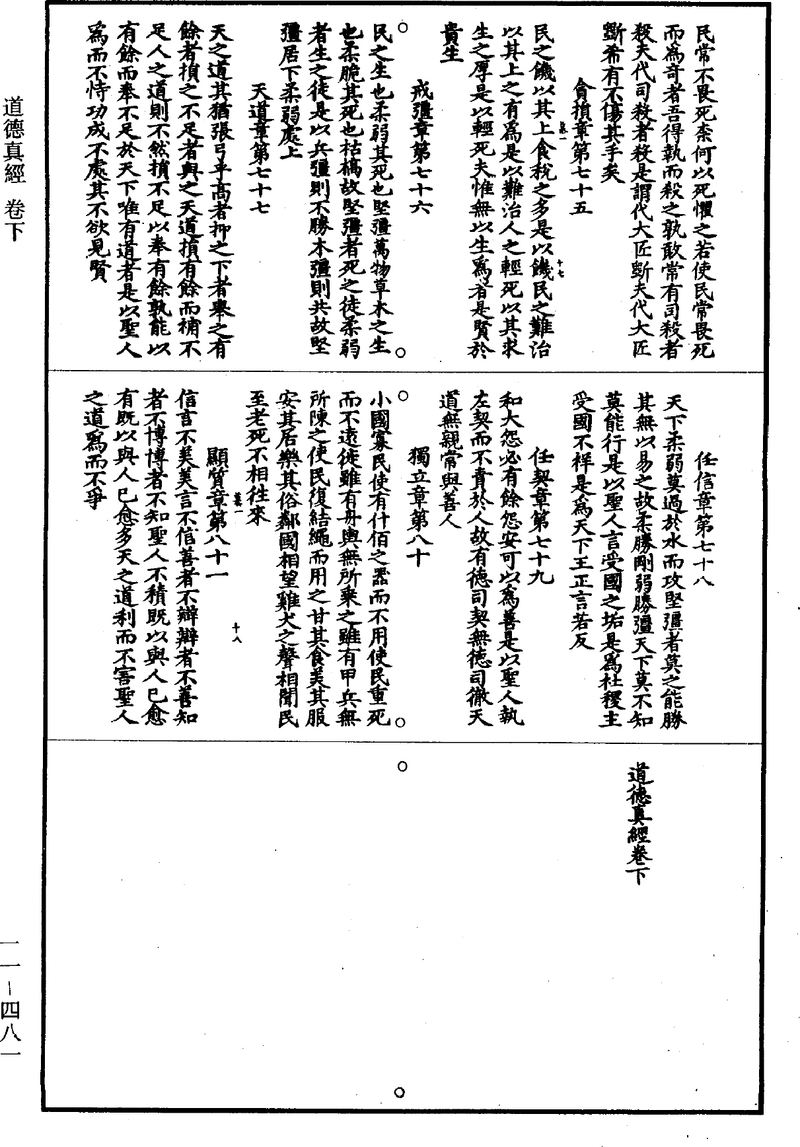 民常不畏死柰何以死懼之若使民常畏死
而爲奇者吾得執而殺之孰敢常有司殺者
殺夫代司殺者殺是謂代大匠斲夫代大匠
斲希有不傷其手矣
貪損章第七十五
民之饑以其上食稅之多是以饑民之難治
以其上之有爲是以難治人之輕死以其求
生之厚是以輕死夫惟無以生爲者是賢於
貴生
戒彊章第七十六
民之生也柔弱其死也堅彊萬物草木之生
也柔脆其死也枯槁故堅彊者死之徒柔弱
者生之徒是以兵彊則不勝木彊則共故堅
彊居下柔弱處上
天道章第七十七
天之道其猶張弓乎高者抑之下者舉之有
餘者損之不足者與之天道損有餘而補不
足人之道則不然損不足以奉有餘孰能以
有餘而奉不足於天下唯有道者是以聖人
爲而不恃功成不處其不欲見賢
任信章第七十八
天下柔弱莫過於水而攻堅彊者莫之能勝
其無以易之故柔勝剛弱勝彊天下莫不知
莫能行是以聖人言受國之垢是爲社稷主
受國不祥是爲天下王正言若反
任契章第七十九
和大怨必有餘怨安可以爲善是以聖人執
左契而不責於人故有德司契無德司徹天
道無親常與善人
獨立章第八十
小國寡民使有什佰之器而不用使民重死
而不遠徙雖有舟輿無所乘之雖有甲兵無
所陳之使民復結繩而用之甘其食美其服
安其居樂其俗鄰國相望雞犬之聲相聞民
至老死不相往來
顯質章第八十一
信言不美美言不信善者不辯辯者不善知
者不博博者不知聖人不積既以與人已愈
有既以與人已愈多天之道利而不害聖人
之道爲而不爭
道德真經卷下
十七
十八
道德真經 卷下
一一－四八一